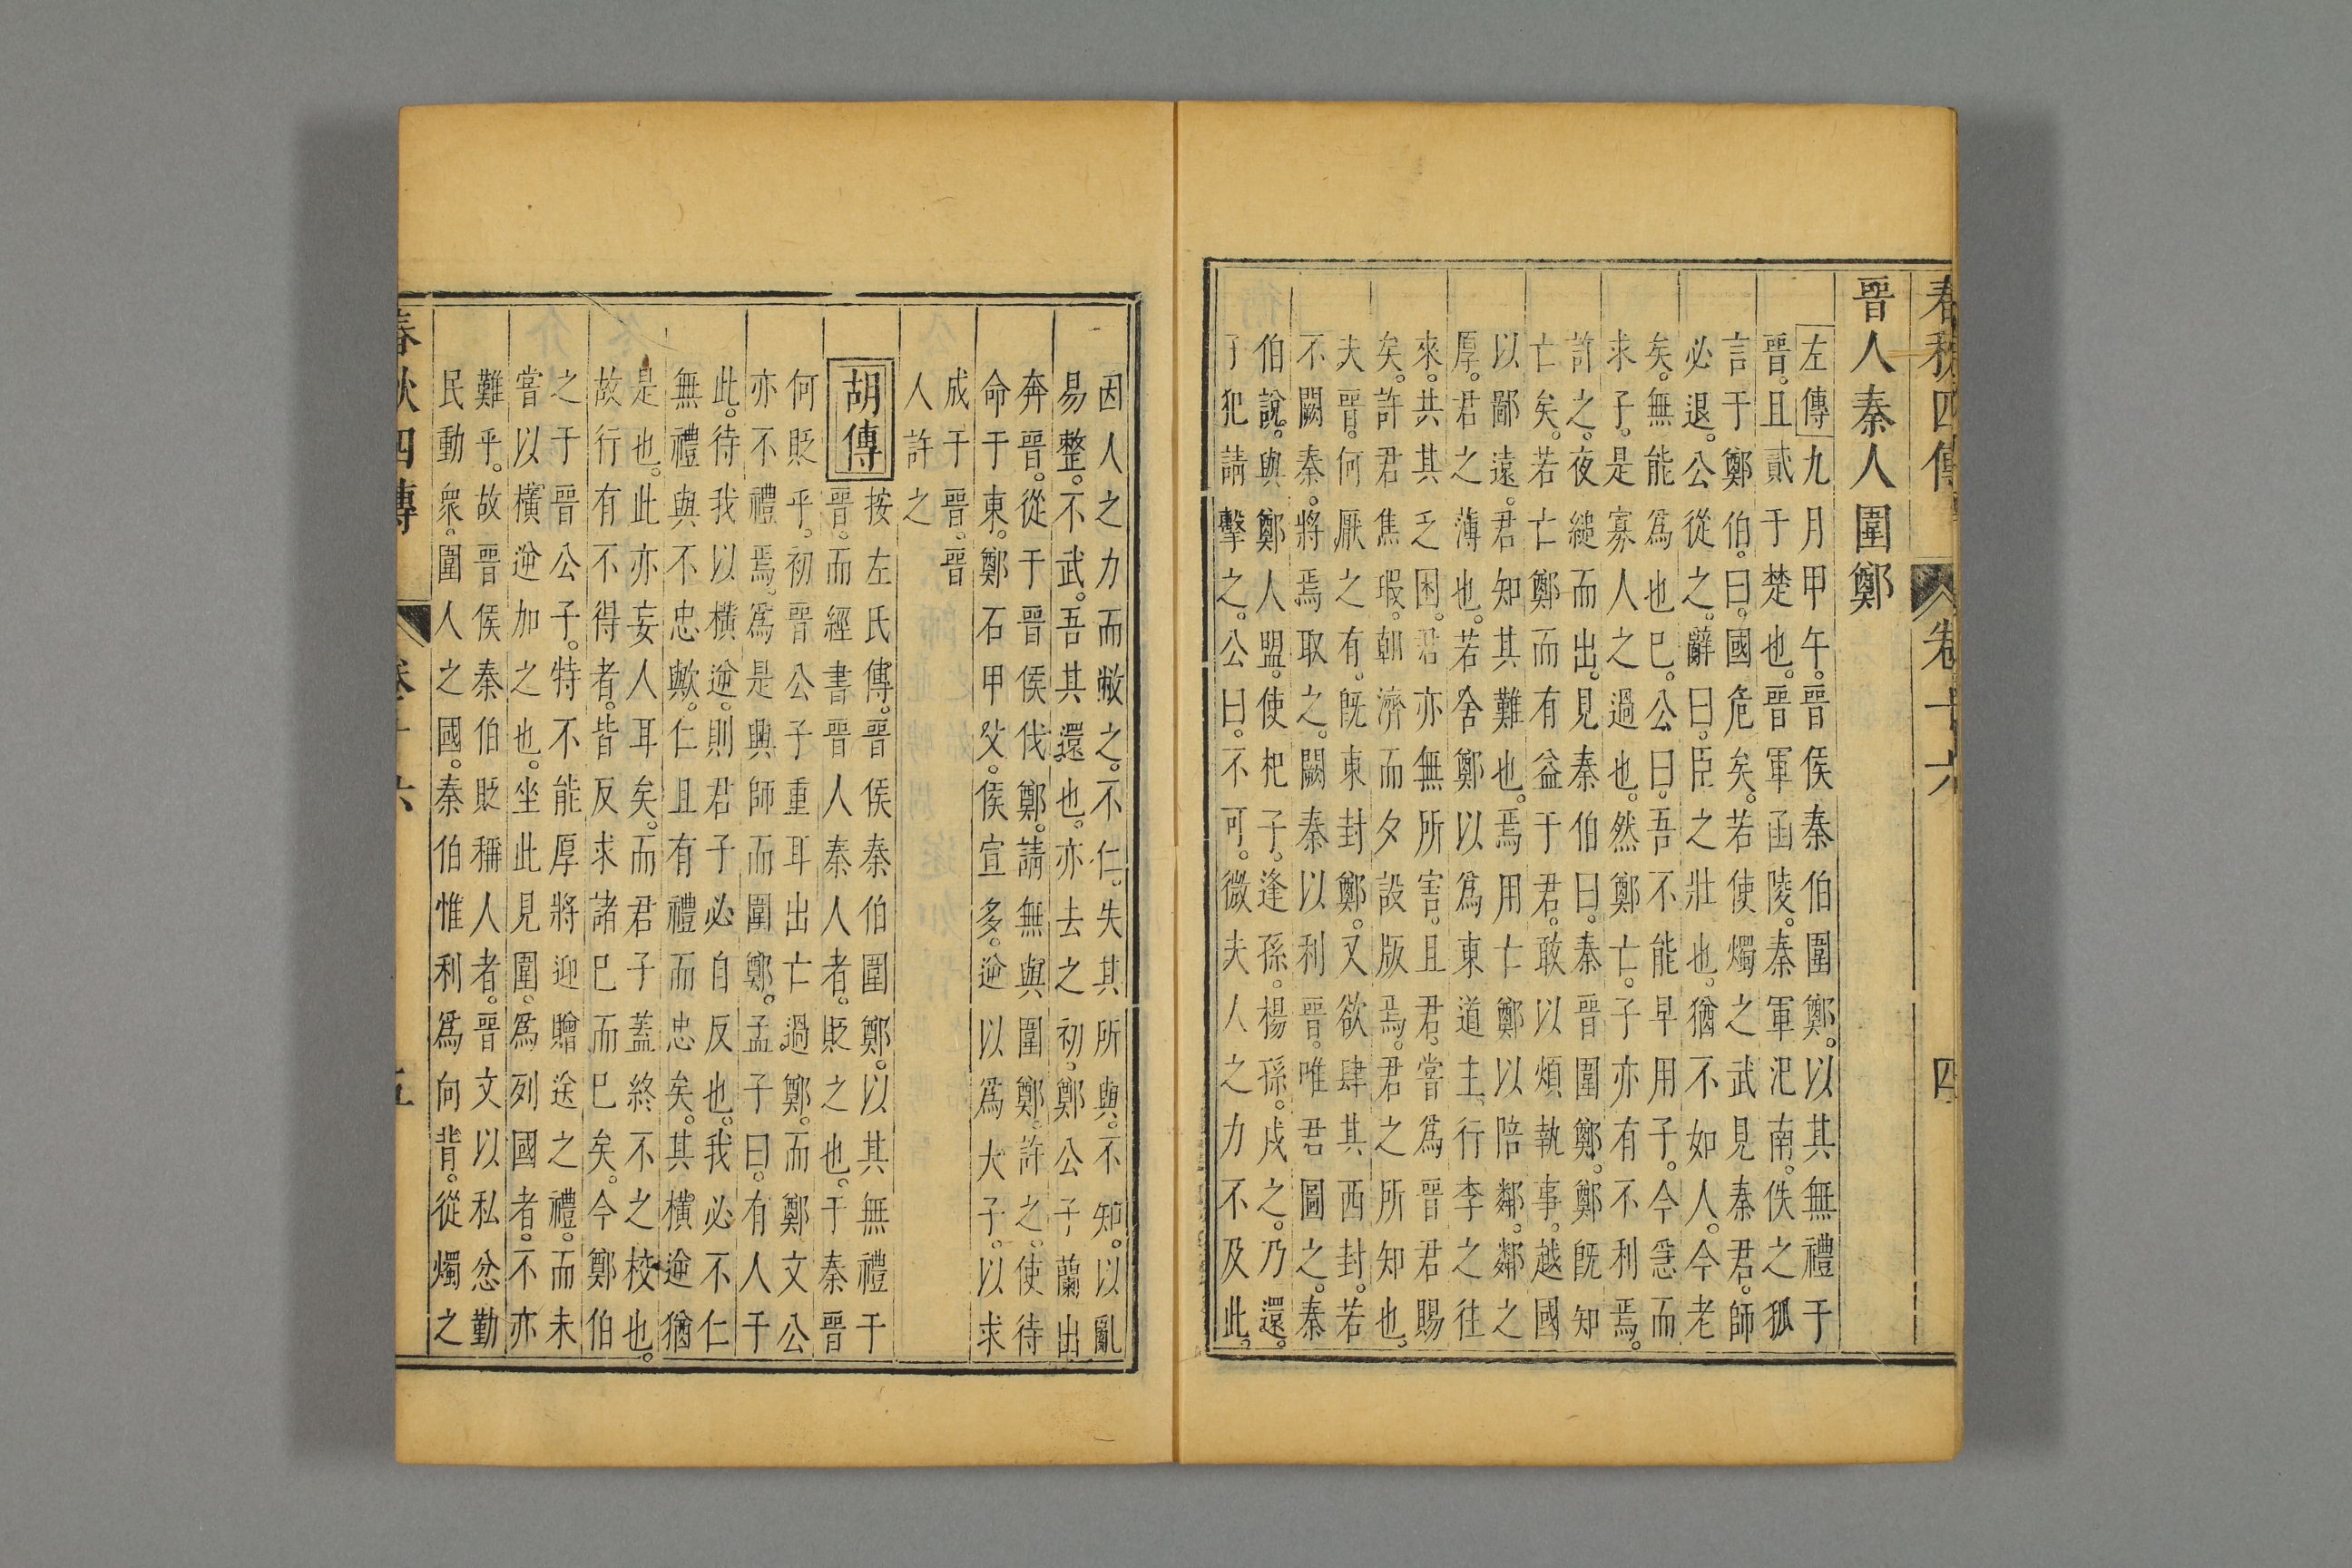 春秋四傳 卷十六 四
晉人秦人圍鄭
左傳九月甲午。晉侯秦伯圍鄭。以其無禮于
晉。且貳于楚也。晉軍函陵。秦軍汜南。佚之狐
言于鄭伯。曰。國危矣。若使燭之武見秦君。師
必退。公從之。辭曰。臣之壯也。猶不如人。今老
矣。無能爲也已。公曰。吾不能早用子。今急而
求子。是寡人之過也。然鄭亡。子亦有不利焉。
許之。夜縋而出。見秦伯曰。秦晉圍鄭。鄭既知
亡矣。若亡鄭而有益于君。敢以煩執事。越國
以鄙遠。君知其難也。焉用亡鄭以陪鄰。鄰之
厚。君之薄也。若舍鄭以爲東道主。行李之往
來。共其乏困。君亦無所害。且君。嘗爲晉君賜
矣。許君焦瑕。朝濟而夕設版焉。君之所知也。
夫晉。何厭之有。既東封鄭。又欲肆其西封。若
不闕秦。將焉取之。闕秦以利晉。唯君圖之。秦
伯說。與鄭人盟。使杞子。逢孫。楊孫。戍之。乃還。
子犯請擊之。公曰。不可。微夫人之力不及此。
因人之力而敝之。不仁。失其所與。不知。以亂
易整。不武。吾其還也。亦去之初。鄭公子蘭出
奔晉。從于晉侯伐鄭。請無與圍鄭。許之。使待
命于東。鄭石甲父。侯宣多。逆以爲大子。以求
成于晉。晉
人許之
胡傳 按左氏傳。晉侯秦伯圍鄭。以其無禮于
晉。而經書晉人秦人者。貶之也。于秦晉
何貶乎。初晉公子重耳出亡過鄭。而鄭文公
亦不禮焉。爲是興師而圍鄭。孟子曰。有人于
此。待我以橫逆。則君子必自反也。我必不仁
無禮與不忠歟。仁且有禮而忠矣。其橫逆猶
是也。此亦妄人耳矣。而君子蓋終不之校也。
故行有不得者。皆反求諸已而已矣。今鄭伯
之于晉公子。特不能厚將迎贈送之禮。而未
嘗以橫逆加之也。坐此見圍。爲列國者。不亦
難乎。故晉侯秦伯貶稱人者。晉文以私忿勤
民動衆。圍人之國。秦伯惟利爲向背。從燭之
春秋四傳 卷十六 五